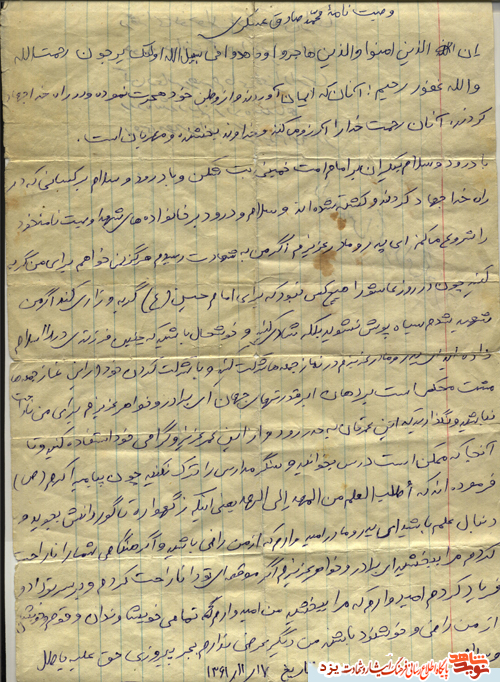 وصیت نامهٔ محمد صادق عسگری
ان الذین امنوا والذین هاجروا وجاهدوا فی سبیل الله اولئک یرجون رحمت الله
والله غفور رحیم: آنان که ایمان آوردند و از وطن خود هجرت نموده و در راه خدا جهاد
کردند، آنان رحمت خدا را آرزو می کنند و خداوند بخشنده و مهربان است.
با درود و سلام بیکران بر امام امت خمینی بت شکن و با درود و سلام بر کسانی که در
راه خدا جهاد کردند و کشته شده اند و سلام و درود بر خانواده های شهدا وصیت نامهٔ خود
را شروع می کنم. ای پدر و مادر عزیزم اگر من به شهادت رسیدم هرگز نمی خواهم برای من گریه
کنید چون در روز عاشورا هیچ کس نبود که برای امام حسین (ع) گریه و زاری کند اگر من
شهید شدم سیاه پوش نشوید بلکه شادی کنید و خوشحال باشید که چنین فرزندی در راه اسلام
داده اید ای پدر و مادر عزیزم در نماز جمعه ها شرکت کنید و با شرکت کردن خود در این نماز جمعه ها
مشت محکمی است بر دهان ابرقدرتهای جهان ای برادر و خواهر عزیزم برای من ناراحت
نباشید و نگذارید این عمرتان به هدر رود و از این عمر عزیز و گرامی خود استفاده کنید و تا
آنجا که ممکن است درس بخوانید و سنگر مدارس را ترک نکنید چون پیامبر اکرم (ص)
فرموده اند که أطلب العلم من المهد إلی اللحد یعنی اینکه ز گهواره تا گور دانش بجوید و
دنبال علم باشید ای پدر و مادر امیدوارم که از من راضی باشید و اگر هنگامی شما را ناراحت
کردم مرا ببخشید ای برادر و خواهر عزیزم اگر موقعی تو را ناراحت کردم و بر سر تو داد و
فریاد کردم امیدوارم که مرا ببخشید من امیدوارم که تمامی خویشاوندان و قوم و خویشان
از من راضی و خوشنود باشند من دیگر عرضی ندارم بجز پیروزی حق علیه باطل
تاریخ ۱۳۶۱/۱۱/۱۷
نوید شاهد
پایگاه اطلاع رسانی فرهنگ ایثار و شهادت یزد